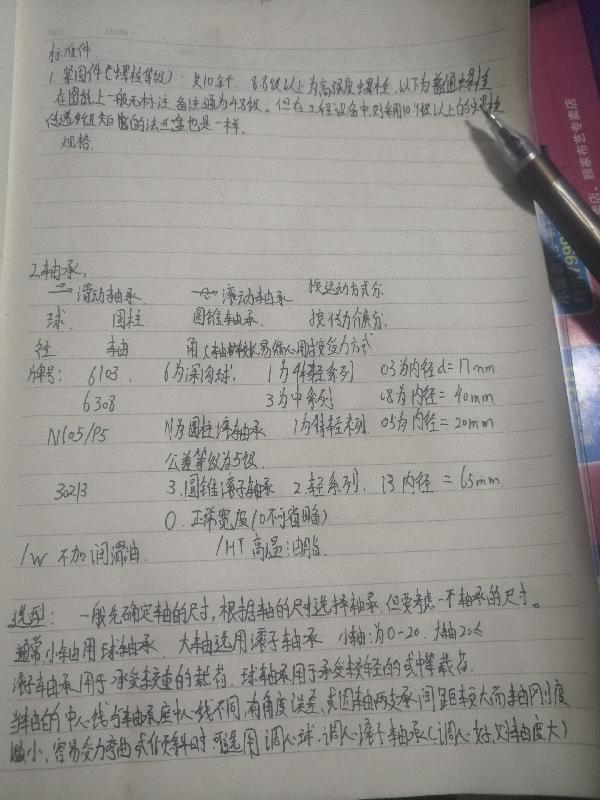 No.    Date:
标准件
1. 紧固件(螺栓等级): 共10个, 8.8级以上为高强度螺栓, 以下为普通螺栓
在图纸上一般无标注备注通为4.8级。但在工程设备中, 则采用10.9级以上的螺栓
的法兰盘也是一样.
规格.
2.轴承.
滑动轴承.  滚动轴承  按运动方式分
球.  圆柱  圆锥轴承.  按传力介质分.
径  轴  角 受力方式
牌号: 6103.  6为深沟球.  1为特轻系列  03为内径d=17mm
6308  3为中系列  08为内径=40mm
N105/P5  N为圆柱滚轴承  1为特轻系列  05为内径=20mm
公差等级为5级.
30213  3.圆锥滚子轴承  2.轻系列.  13 内径 = 65mm.
0. 正常宽度(0不可省略)
/W 不加润滑油.  /HT 高温油脂.
选型: 一般先确定轴的尺寸, 根据轴的尺寸选择轴承, 但要考虑一下轴承的尺寸。
通常小轴用球轴承  大轴选用滚子轴承  小轴:为0-20. 大轴20≤
滚子轴承用于承受较重的载荷. 球轴承用于承受较轻的或中等载荷.
当轴的中心线与轴承座中心线不同, 有角度误差, 或因轴两支承间距较大而轴刚度
小, 容易受力弯曲或倾斜时 可选用 调心球.调心滚子轴承(调心好,对轴度大)